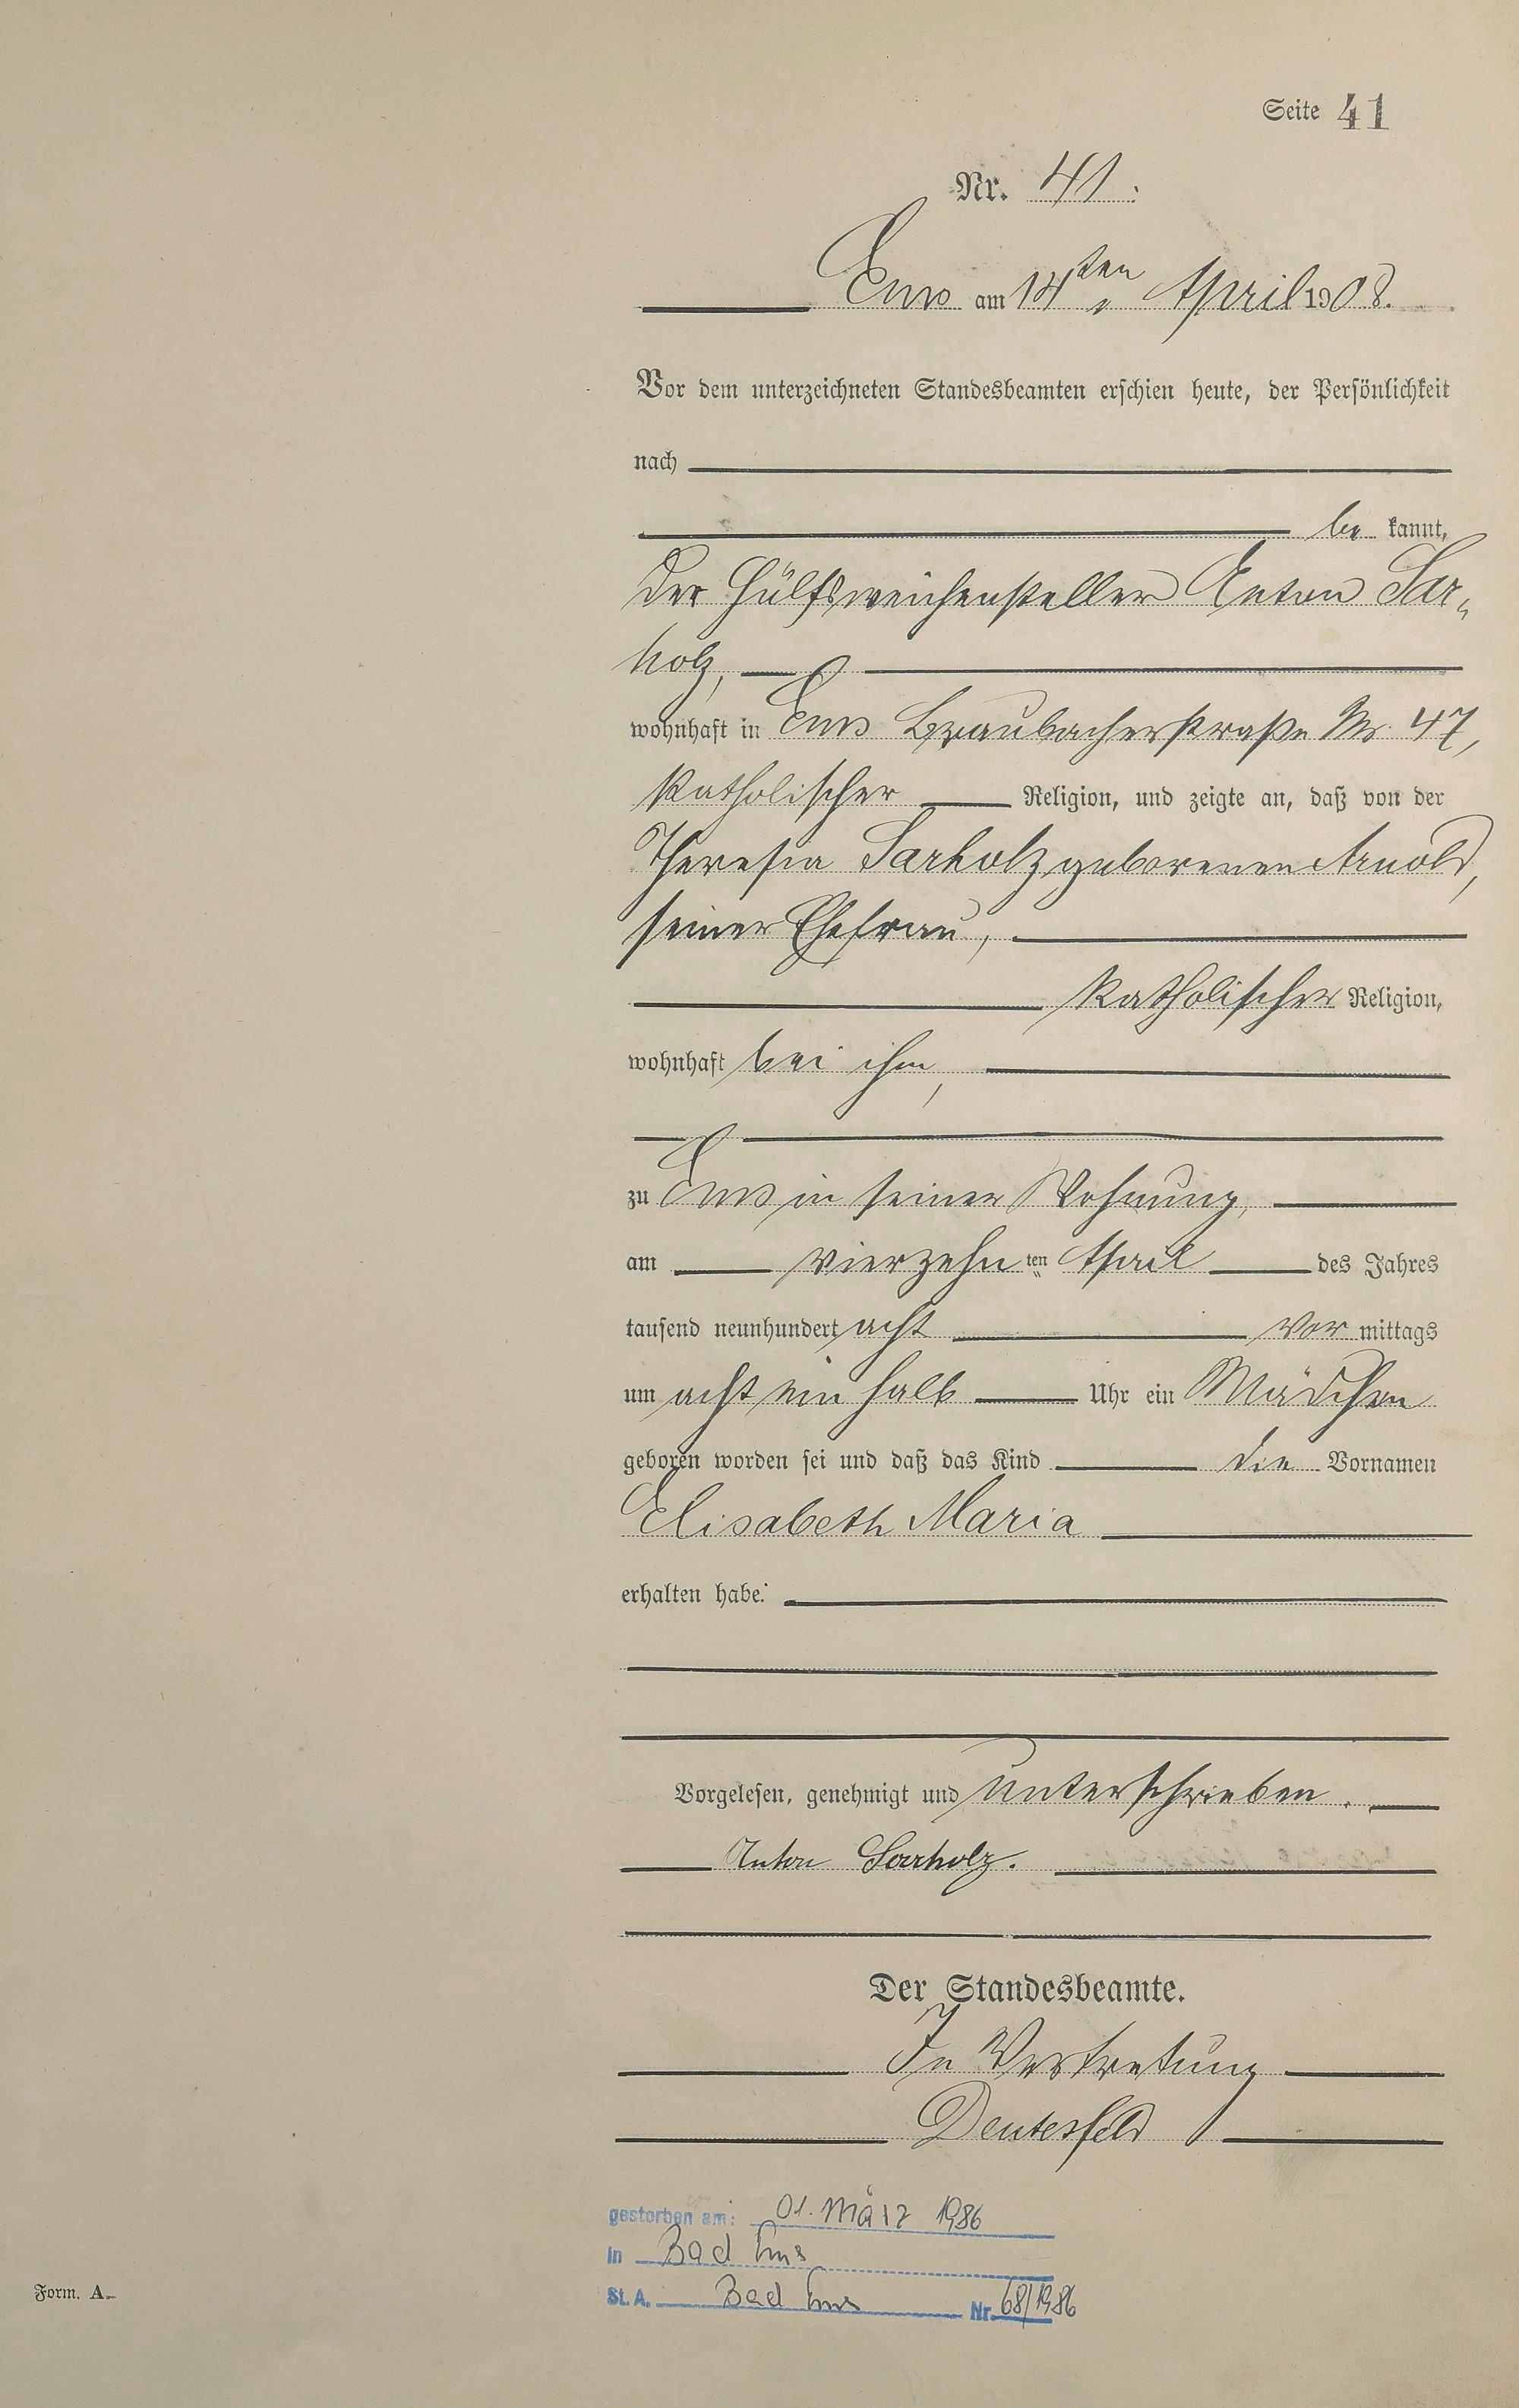 Seite 41
Nr. 41.
Ems am 14ten April 1908.
Vor dem unterzeichneten Standesbeamten erschien heute, der Persönlichkeit
nach
be kannt,
der Hülfsweichensteller Anton Sar-
holz,
wohnhaft in Ems Braubacherstraße Nr. 47,
katholischer Religion, und zeigte an, daß von der
Theresia Sarholz geborenen Arnold,
seiner Ehefrau,
katholischer Religion,
wohnhaft bei ihm,
zu Ems in seiner Wohnung,
am vierzehnten April des Jahres
tausend neunhundert acht vor mittags
um acht ein halb Uhr ein Mädchen
geboren worden sei und daß das Kind die Vornamen
Elisabeth Maria
erhalten habe.
Vorgelesen, genehmigt und unterschrieben.
Anton Sarholz.
Der Standesbeamte.
In Vertretung
Deutesfeld
gestorben am: 01. März 1986
in Bad Ems
St. A. Bad Ems Nr. 68/1986
Form. A.